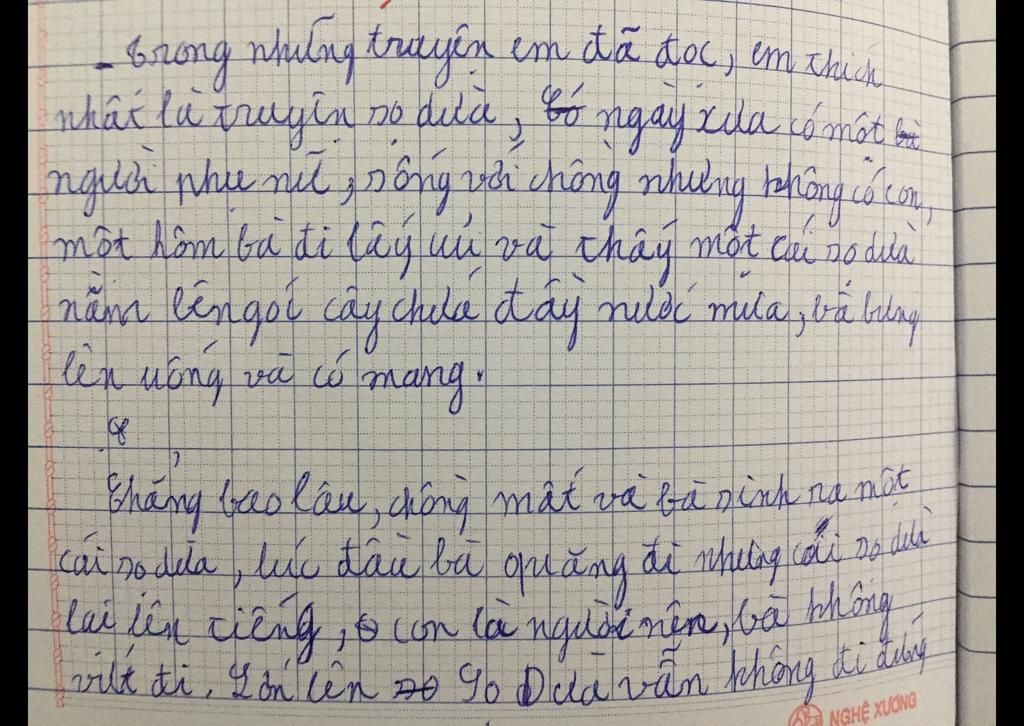 - Trong những truyện em đã đọc, em thích
nhất là truyện sọ dừa, ngày xưa có một
người phụ nữ, sống với chồng nhưng không có con,
một hôm bà đi lấy củi và thấy một cái sọ dừa
nằm lên gốc cây chứa đầy nước mưa, bà bưng
lên uống và có mang.
Chẳng bao lâu, chồng mất và bà sinh ra một
cái sọ dừa, lúc đầu bà quăng đi nhưng cái sọ dừa
lại lên tiếng, con là người nên, bà không
vứt đi. Lớn lên Sọ Dừa vẫn không đi đứng
NGHỆ XƯƠNG